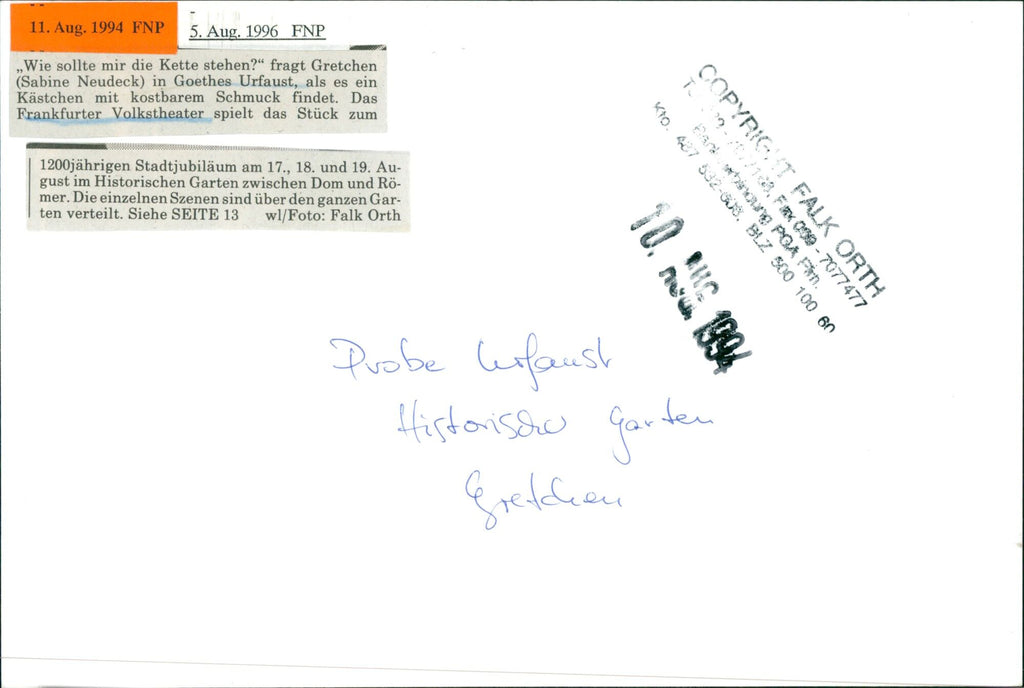 11. Aug. 1994 FNP
5. Aug. 1996 FNP
„Wie sollte mir die Kette stehen?“ fragt Gretchen
(Sabine Neudeck) in Goethes Urfaust, als es ein
Kästchen mit kostbarem Schmuck findet. Das
Frankfurter Volkstheater spielt das Stück zum
1200jährigen Stadtjubiläum am 17., 18. und 19. Au-
gust im Historischen Garten zwischen Dom und Rö-
mer. Die einzelnen Szenen sind über den ganzen Gar-
ten verteilt. Siehe SEITE 13 wl/Foto: Falk Orth
COPYRIGHT FALK ORTH
Fax 069 - 7077477
Bankverbindung PGA Ffm.
Kto. 487 632-606, BLZ 500 100 60
10. AUG. 1994
Probe Urfaust
Historischer Garten
Gretchen